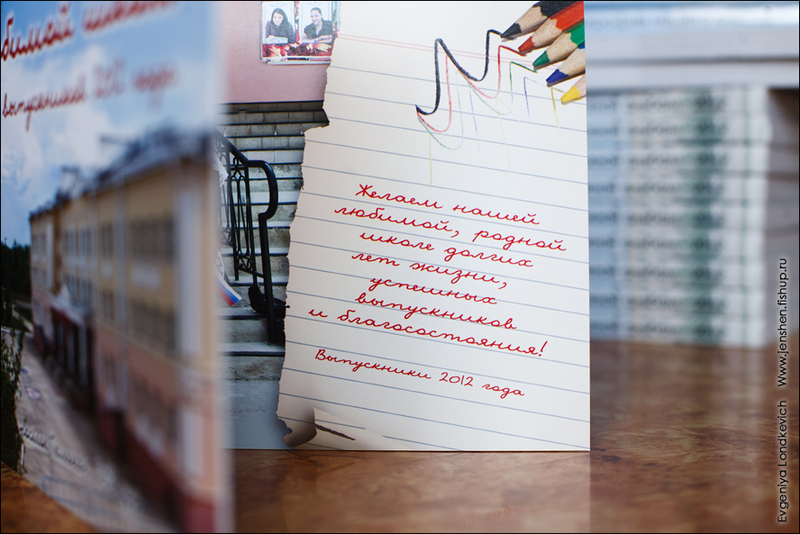 выпускников 2012 года
Желаем нашей
любимой, родной
школе долгих
лет жизни,
успешных
выпускников
и благосостояния!
Выпускники 2012 года
Evgeniya Londkevich www.jenshen.fishup.ru